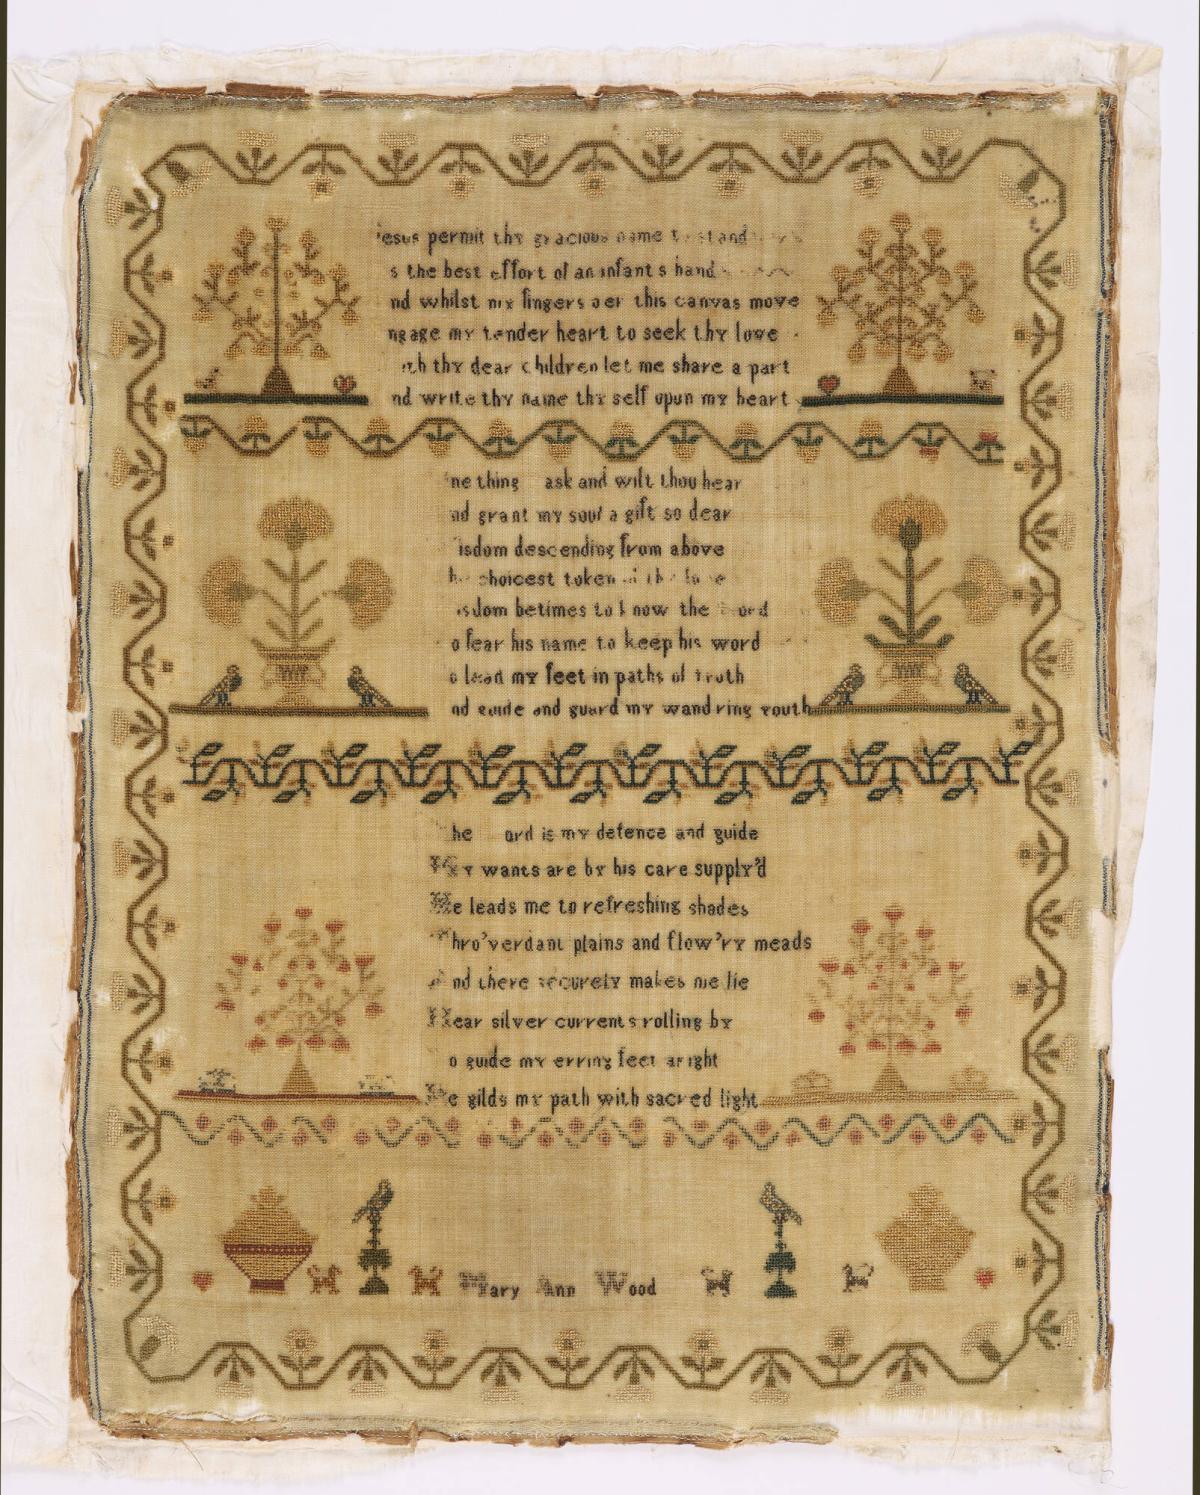 esus permit thy gracious name to stand
s the best effort of an infants hand
nd whilst my fingers oer this canvas move
ngage my tender heart to seek thy love
ith thy dear children let me share a part
nd write thy name thy self upon my heart
ne thing ask and wilt thou hear
nd grant my soul a gift so dear
isdom descending from above
he choicest token of thy love
isdom betimes to know the ord
o fear his name to keep his word
o lead my feet in paths of truth
nd guide and guard my wandring youth
he ord is my defence and guide
My wants are by his care supply'd
He leads me to refreshing shades
Thro'verdant plains and flow'ry meads
And there securely makes me lie
Near silver currents rolling by
o guide my erring feet aright
He gilds my path with sacred light
Mary Ann Wood